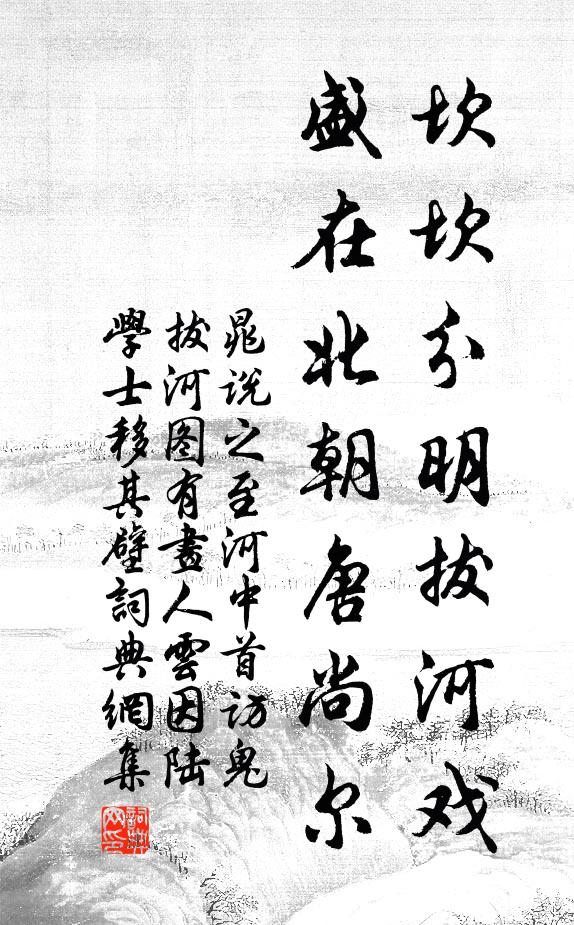 坎坎分明拔河戏
盛在北朝唐尚尔
晁说之至河中首访鬼
拔河图有畫人雲因陆
學士移其壁詞典網集